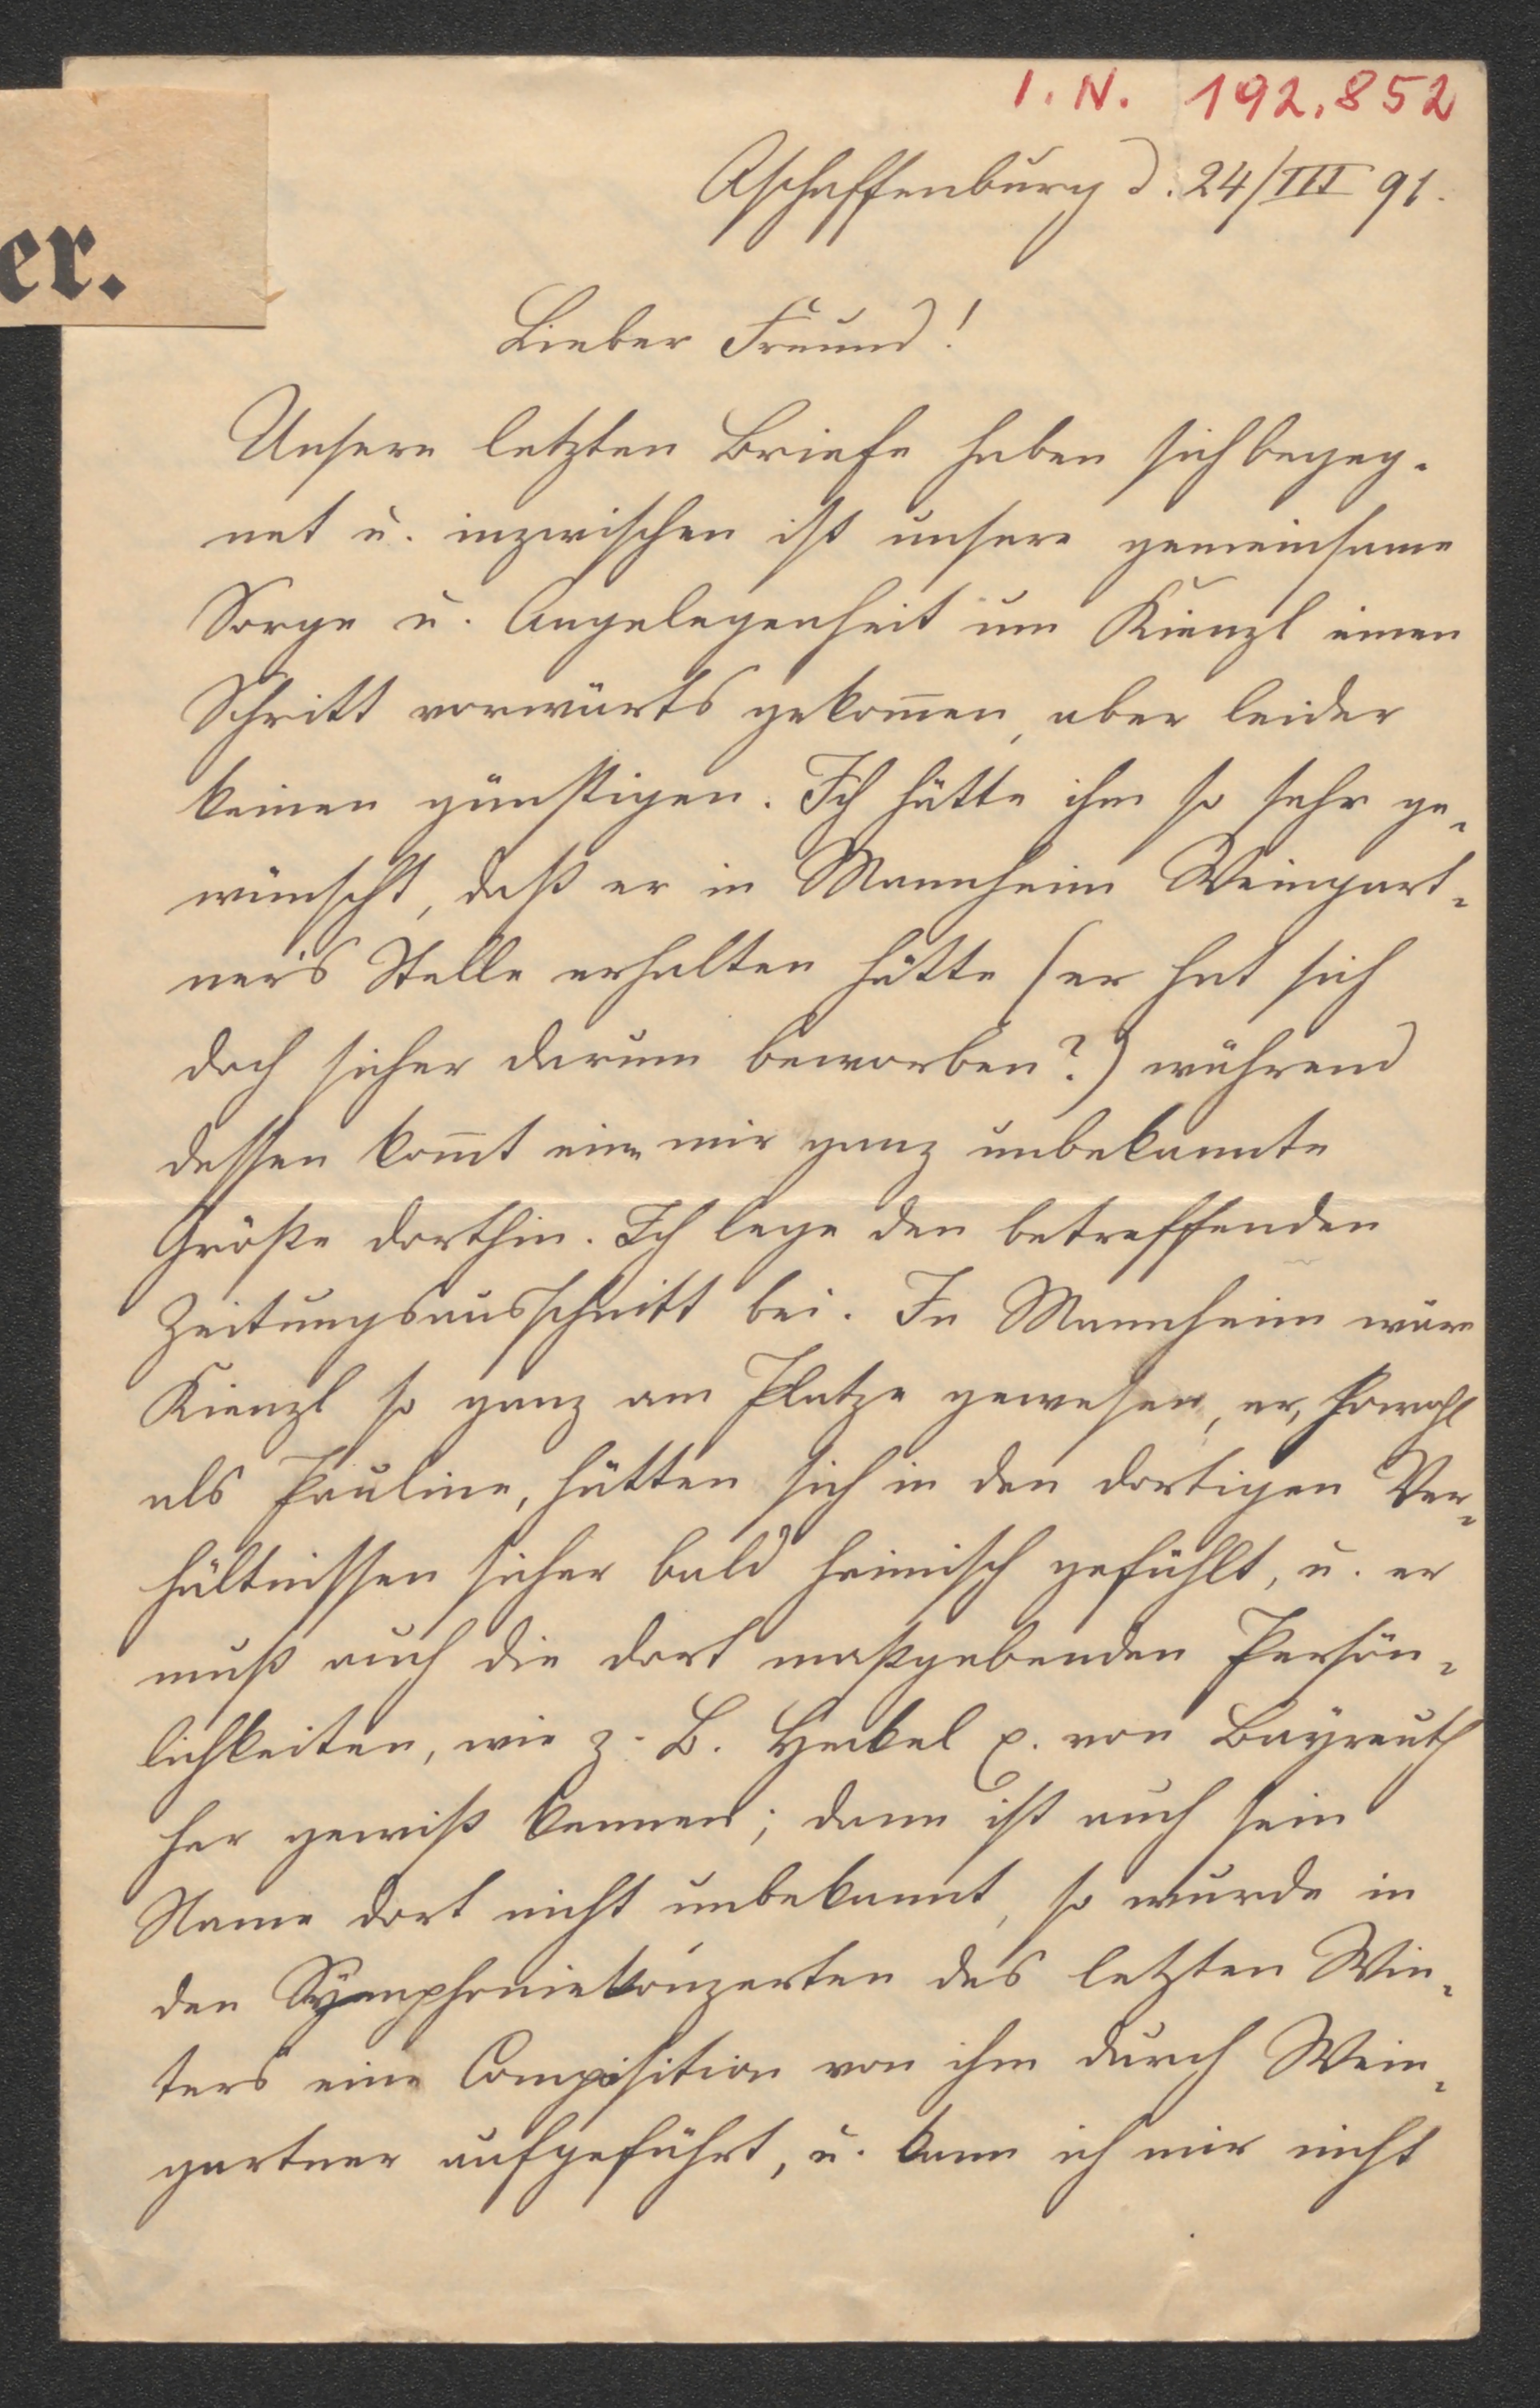 I. N. 192.852
er.
Aschaffenburg d. 24/III 91.
Lieber Freund!
Unsere letzten Briefe haben sich begeg-
net u. inzwischen ist unsere gemeinsame
Sorge u. Angelegenheit um Kienzl einen
Schritt vorwärts gekom̅en, aber leider
keinen günstigen. Ich hätte ihm so sehr ge-
wünscht, daß er in Mannheim Weingart-
ner's Stelle erhalten hätte (er hat sich
doch sicher darum beworben?) während
dessen kom̅t eine mir ganz unbekannte
Größe dorthin. Ich lege den betreffenden
Zeitungsausschnitt bei. In Mannheim wäre
Kienzl so ganz am Platze gewesen, er, sowohl
als Pauline, hätten sich in den dortigen Ver-
hältnissen sicher bald heimisch gefühlt, u. er
muß auch die dort maßgebenden Persön-
lichkeiten, wie z. B. Heckel p. von Bayreuth
her gewiß kennen; dann ist auch sein
Name dort nicht unbekannt, so wurde in
den Symphoniekonzerten des letzten Win-
ters eine Composition von ihm durch Wein-
gartner aufgeführt, u. kann ich mir nicht